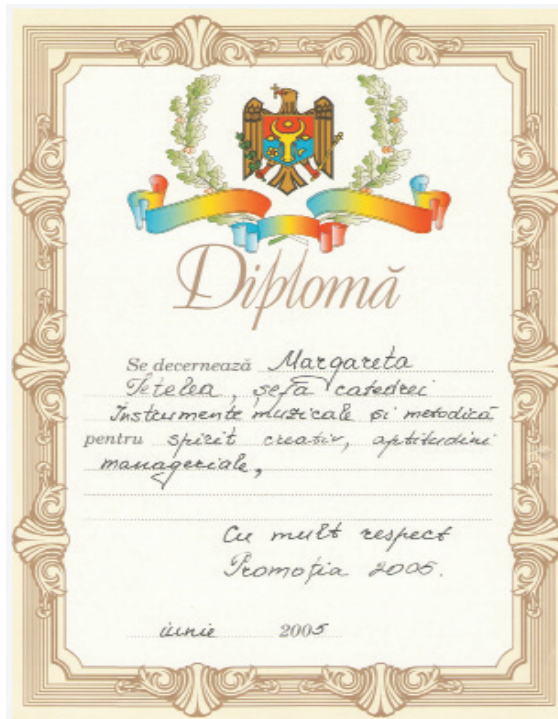 Diplomă
Se decernează Margareta
Tetelea, șefa catedrei
Instrumente muzicale și metodică
pentru spirit creativ, aptitudini
manageriale,
Cu mult respect
Promoția 2005.
iunie 2005